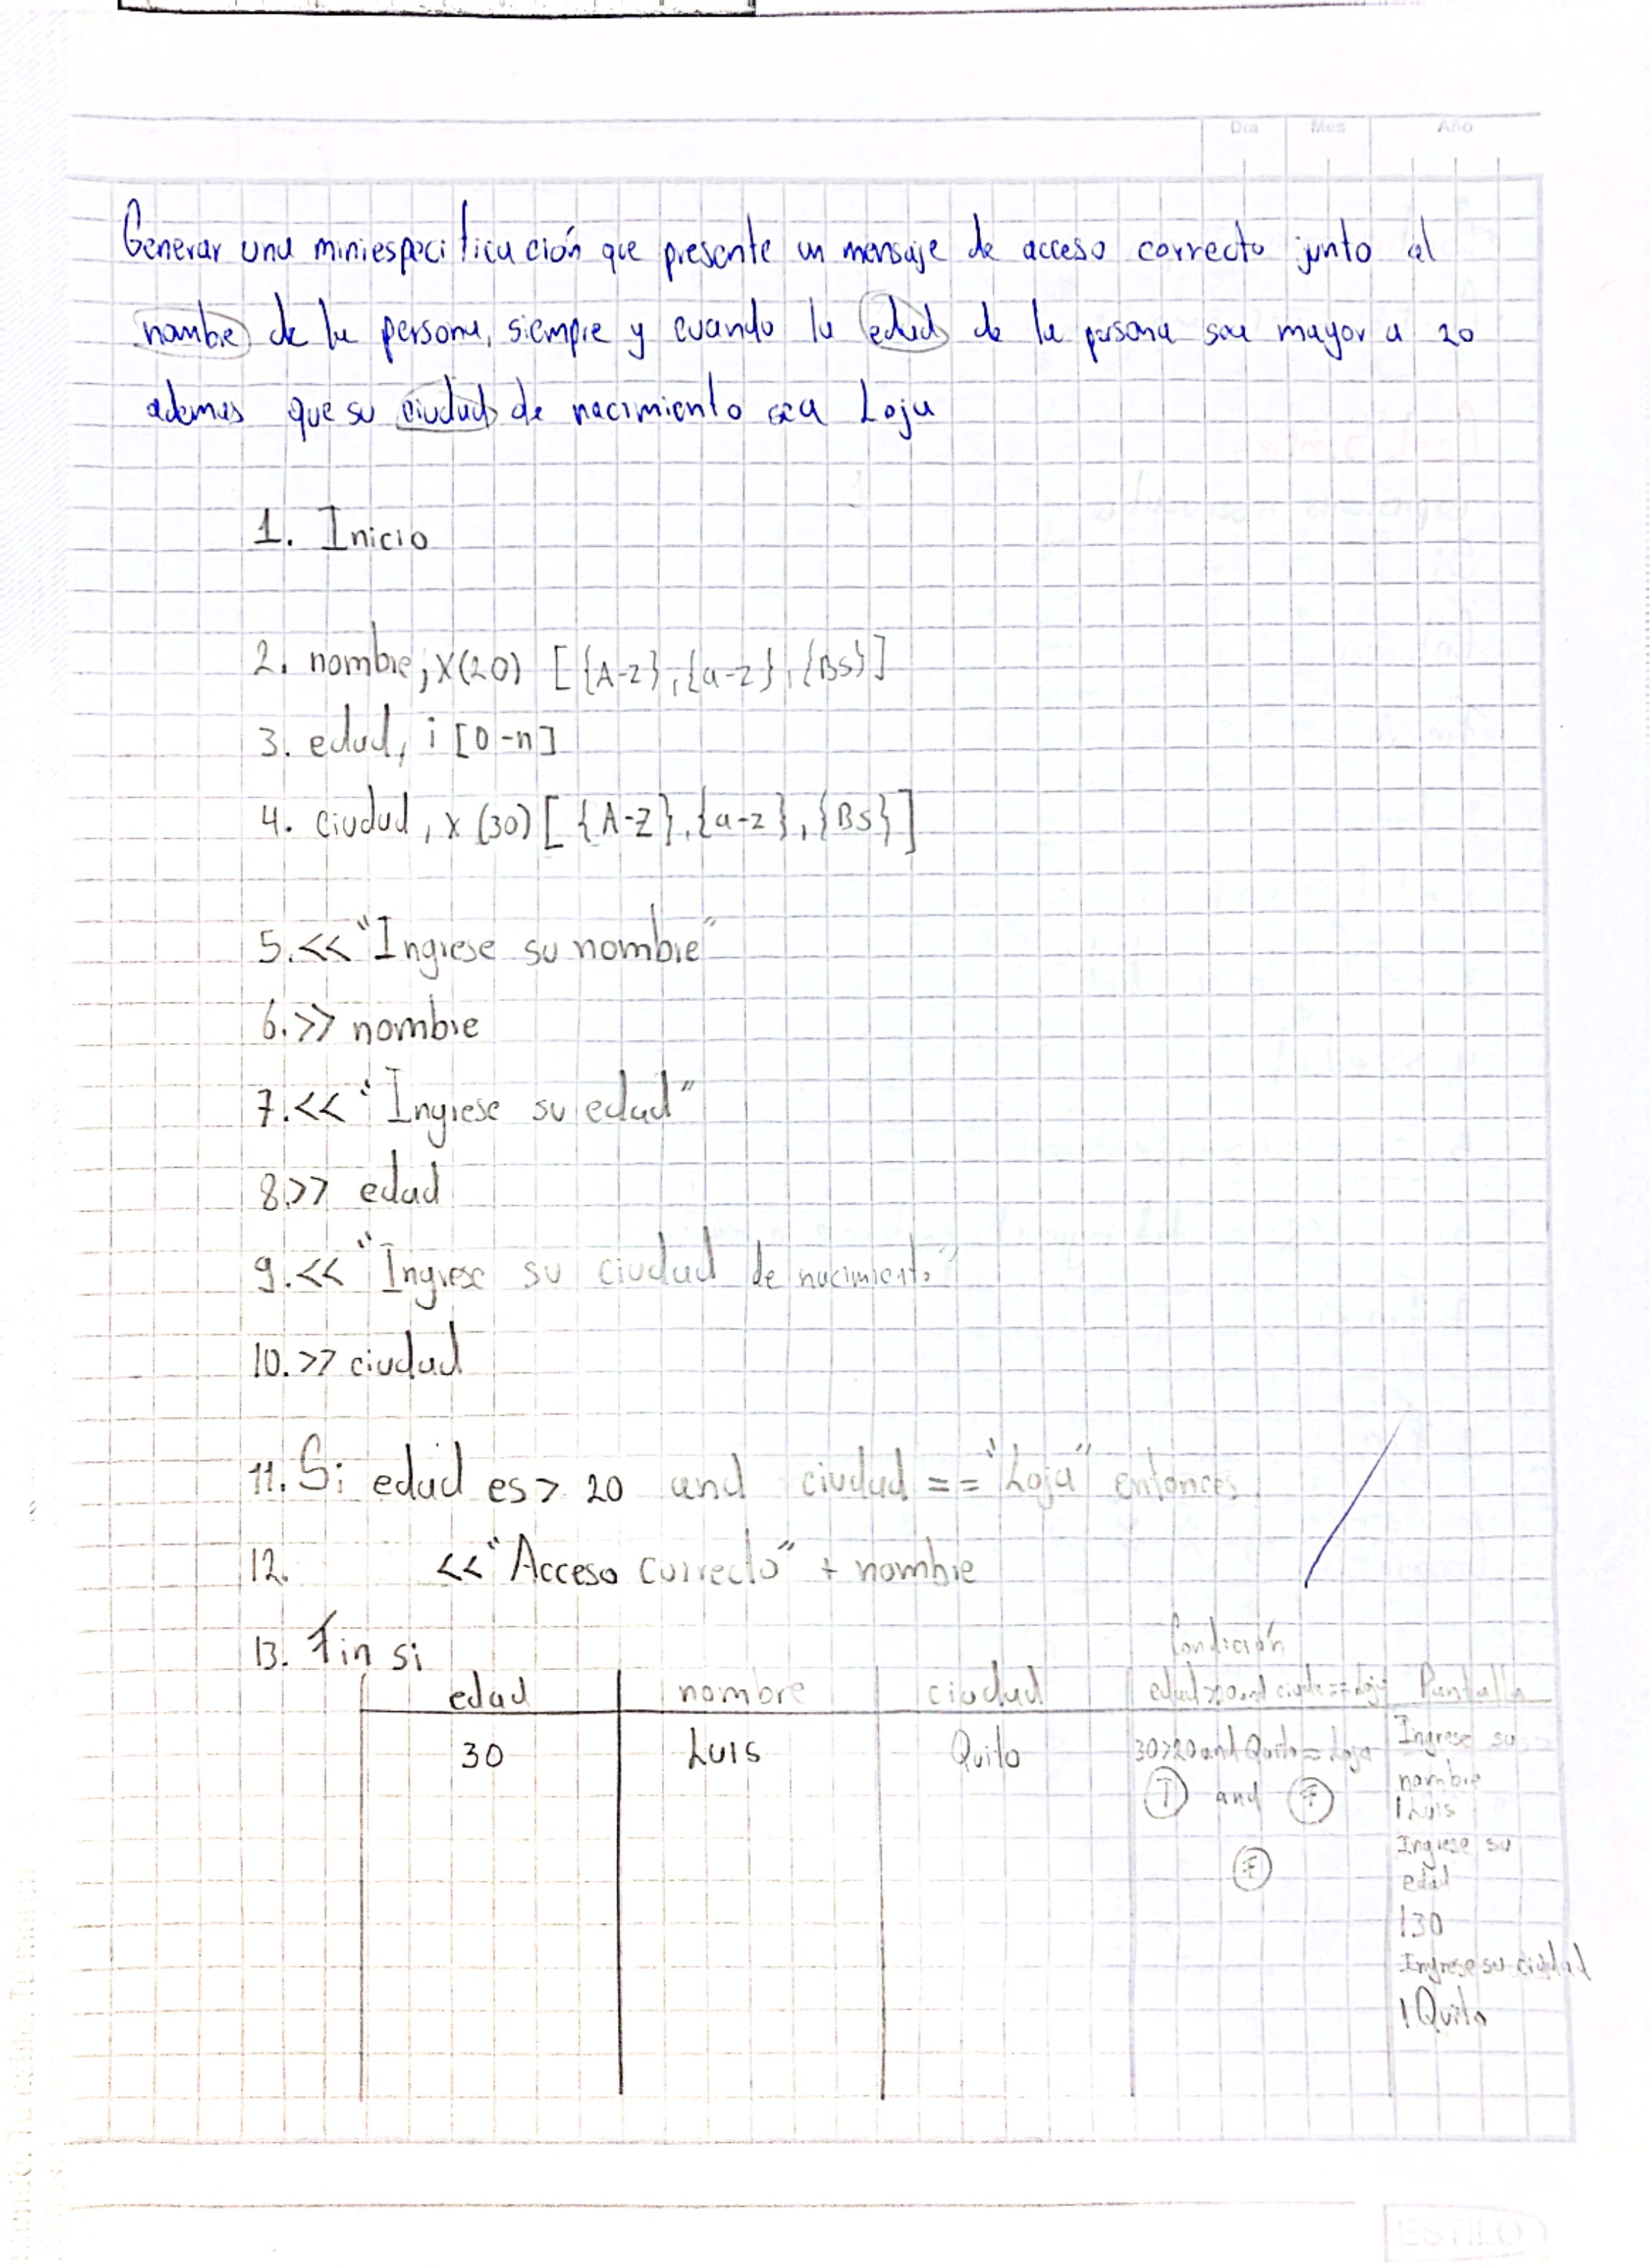 Día Mes Año
Generar una miniespecificación que presente un mensaje de acceso correcto junto al
nombre de la persona, siempre y cuando la edad de la persona sea mayor a 20
ademas que su ciudad de nacimiento sea Loja
1. Inicio
2. nombre, X(20) [{A-z},{a-z},{Bs}]
3. edad, i [0-n]
4. ciudad, x (30) [{A-Z},{a-z},{Bs}]
5. << "Ingrese su nombre"
6. >> nombre
7. << "Ingrese su edad"
8 >> edad
9. << "Ingrese su ciudad de nacimiento"
10. >> ciudad
11. Si edad es > 20 and ciudad == "Loja" entonces
12. << "Acceso correcto" + nombre
13. Fin si
Condición
edad nombre ciudad edad>20 and ciudad==Loja Pantalla
30 Luis Quito 30>20 and Quito = Loja Ingrese su
nombre
T and F | Luis
Ingrese su
F edad
| 30
Ingrese su ciudad
| Quito
ESTILO